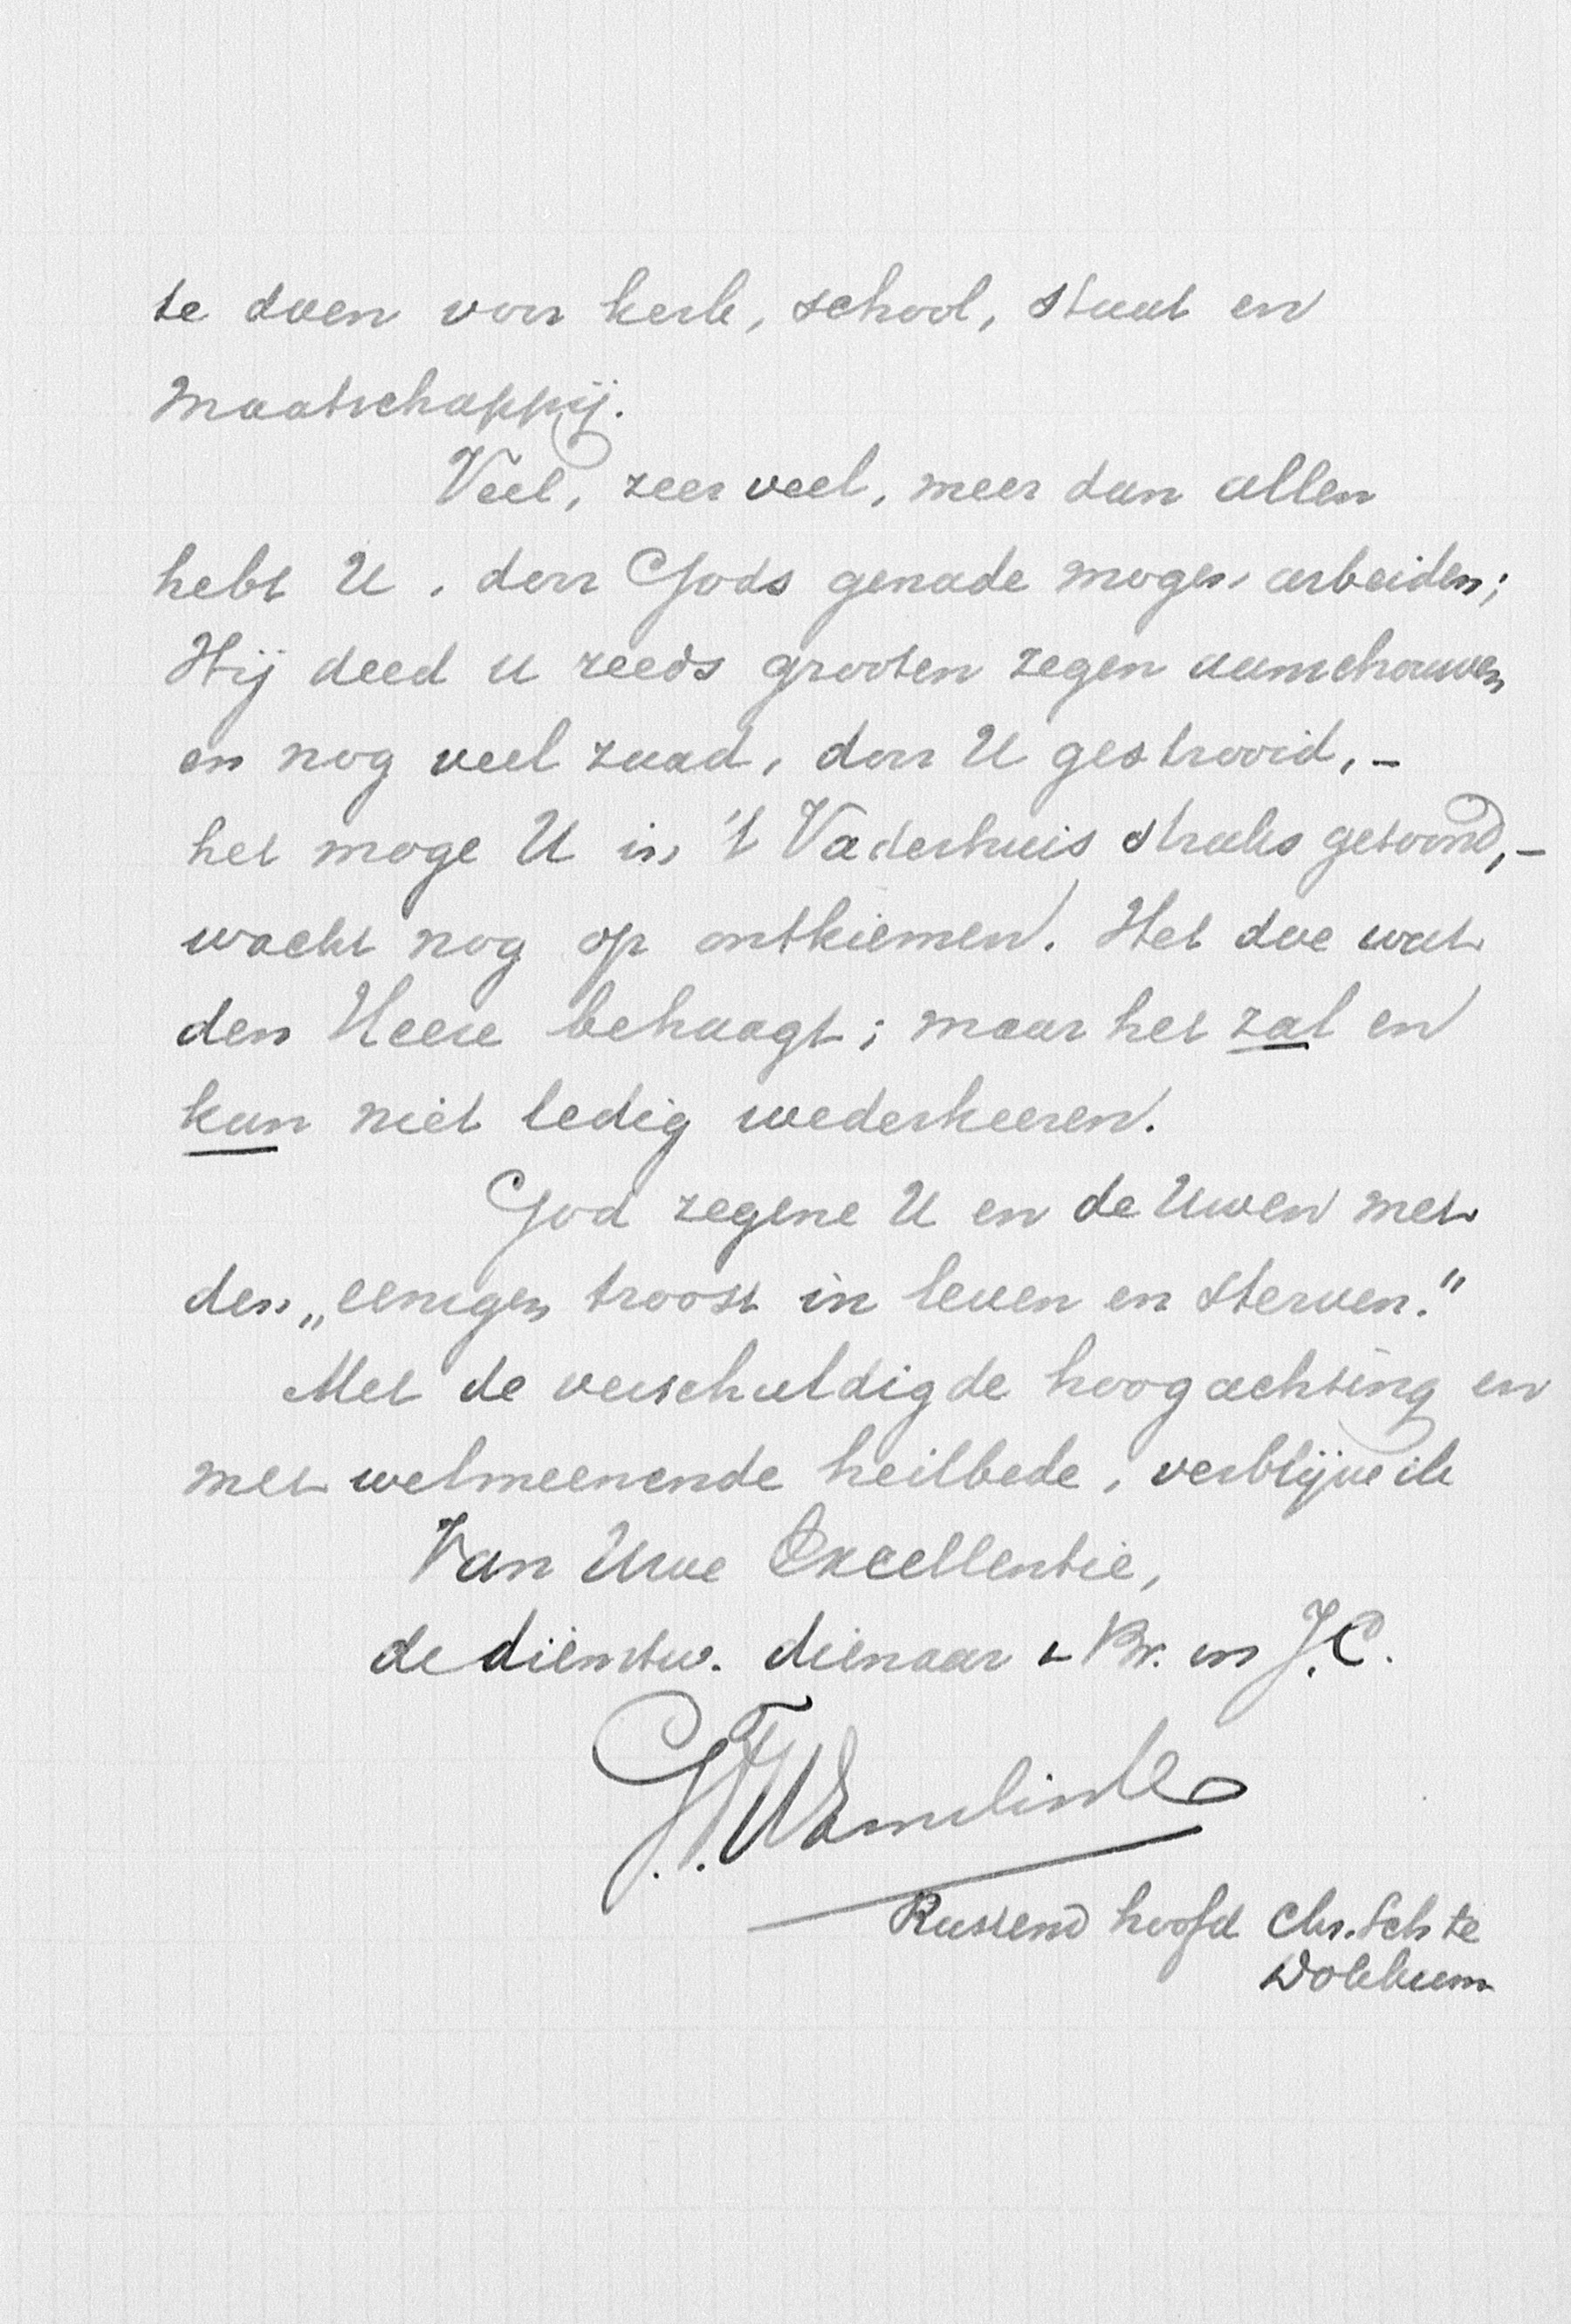 te doen voor kerk, school, staat en
maatschappij.
Veel, zeer veel, meer dan allen
hebt U, door Gods genade mogen arbeiden;
Hij deed u reeds grooten zegen aanschouwen
en nog veel zaad, door U gestrooid, -
het moge U in 't Vaderhuis straks getoond, -
wacht nog op ontkiemen. Het doe wat
den Heere behaagt; maar het zal en
kan niet ledig wederkeeren.
God zegene U en de Uwen met
den „eenigen troost in leven en sterven."
Met de verschuldigde hoogachting en
met welmeenende heilbede, verblijve ik
Van Uwe Excellentie,
de dienstw. dienaar & Br. in J.C.
Rustend hoofd Chr. Sch te
Dokkum